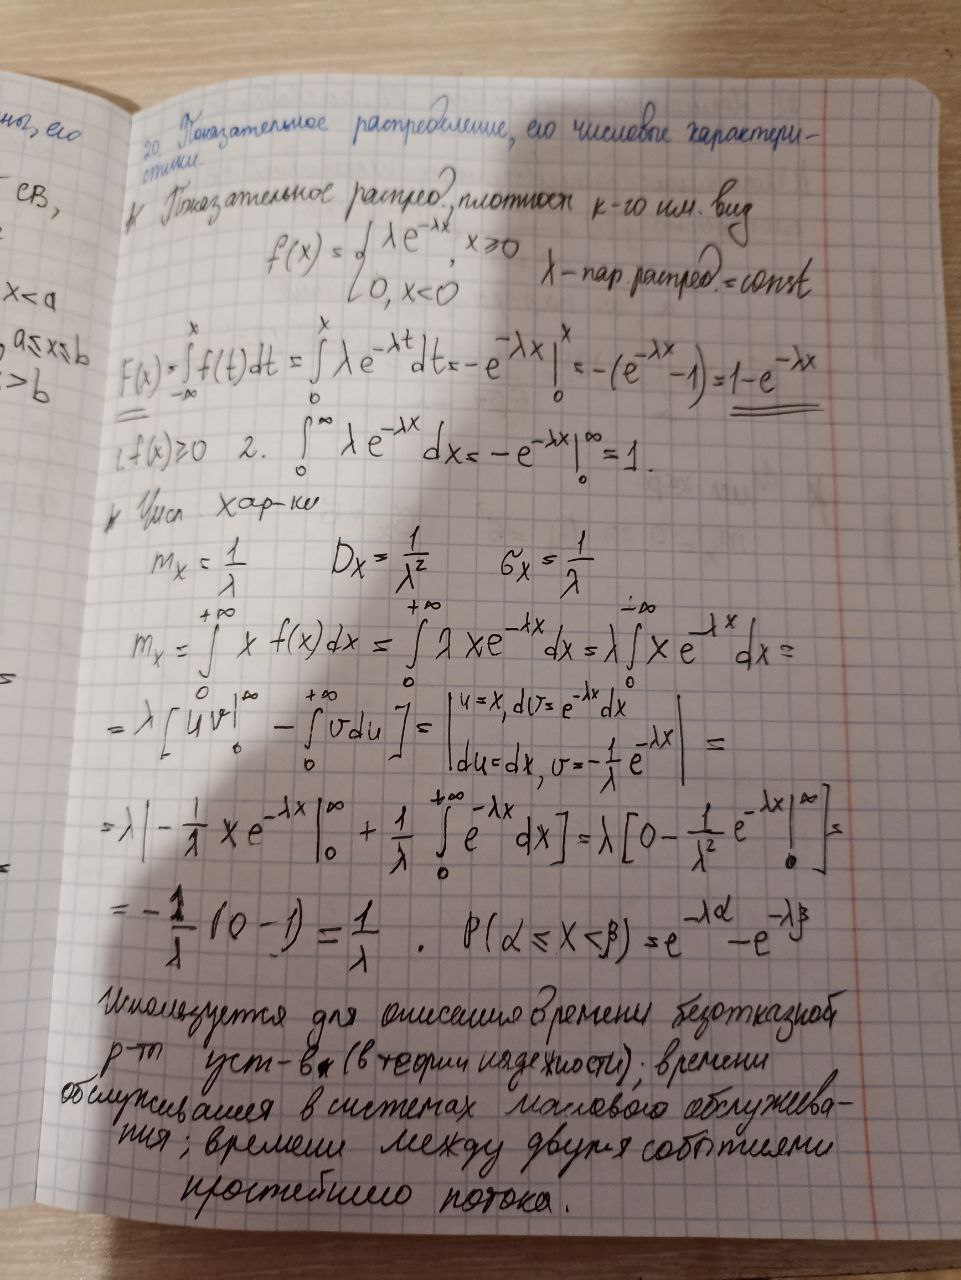 ны, его
СВ,
x<a
, a≤x≤b
>b
20. Показательное распределение, его числовые характери-
стики.
Показательное распред., плотность к-го им. вид
f(x) = { λe^{-λx}, x≥0
0, x<0
λ – пар. распред. = const
F(x) = ∫_{-∞}^{x} f(t)dt = ∫_{0}^{x} λe^{-λt}dt = -e^{-λx}|_{0}^{x} = -(e^{-λx} -1) = 1-e^{-λx}
1. f(x)≥0 2. ∫_{0}^{∞} λe^{-λx}dx = -e^{-λx}|_{0}^{∞} = 1.
Числ хар-ки
m_x = 1/λ D_x = 1/λ² σ_x = 1/λ
m_x = ∫_{0}^{+∞} x f(x)dx = ∫_{0}^{+∞} λxe^{-λx}dx = λ∫_{0}^{+∞} xe^{-λx}dx =
= λ[uv|_{0}^{∞} - ∫_{0}^{+∞} vdu] = | u=x, dv=e^{-λx}dx
du=dx, v=-1/λ e^{-λx} | =
= λ[-1/λ xe^{-λx}|_{0}^{∞} + 1/λ ∫_{0}^{+∞} e^{-λx}dx] = λ[0 - 1/λ² e^{-λx}|_{0}^{∞}] =
= -1/λ (0-1) = 1/λ . P(α≤X<β) = e^{-λα} - e^{-λβ}
Используется для описания времени безотказной
р-ты уст-в (в теории надежности); времени
обслуживания в системах массового обслужива-
ния; времени между двумя событиями
простейшего потока.